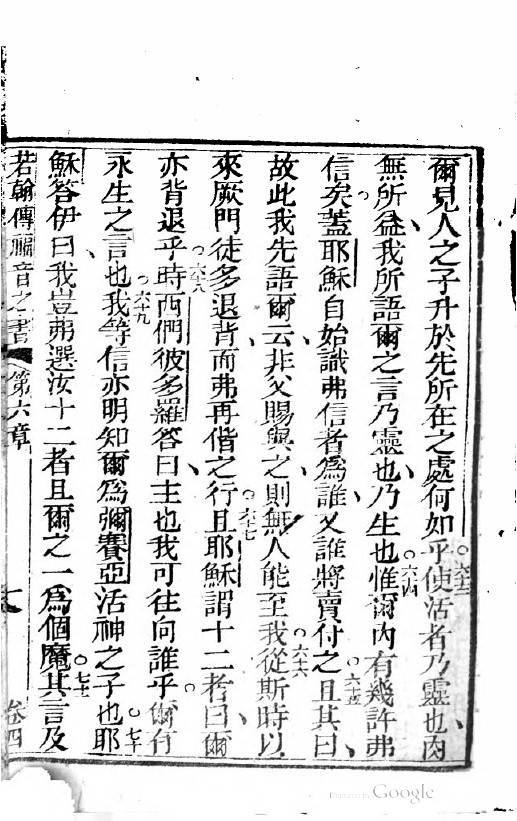 爾見人之子升於先所在之處何如乎○六三使活者乃靈也肉
無所益我所語爾之言乃靈也乃生也○六四惟爾內有幾許弗
信矣蓋耶穌自始識弗信者爲誰又誰將賣付之○六十五且其曰
故此我先語爾云非父賜與之則無人能至我○六十六從斯時以
來厥門徒多退背而弗再偕之行○六十七且耶穌謂十二者曰爾
亦背退乎○六十八時西們彼多羅答曰主也我可往向誰乎爾有
永生之言也○六十九我等信亦明知爾爲彌賽亞活神之子也○七十耶
穌答伊曰我豈弗選汝十二者且爾之一爲個魔○七十一其言及
若翰傳福音之書 第六章 卷四
Google